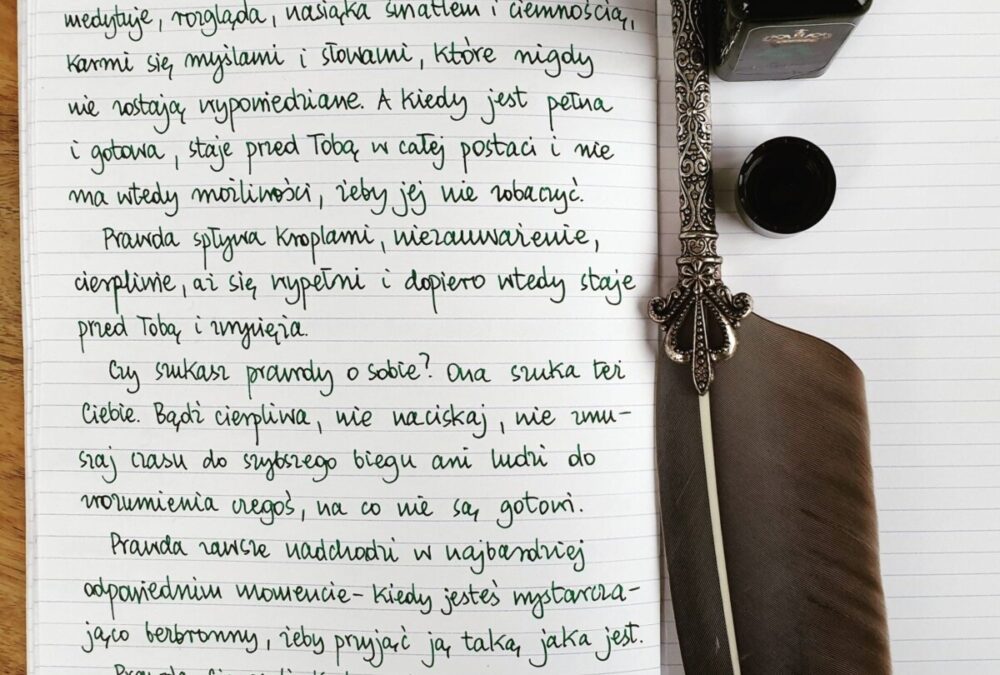 medytuje, rozgląda, nasiąka światłem i ciemnością,
karmi się myślami i słowami, które nigdy
nie zostają wypowiedziane. A kiedy jest pełna
i gotowa, staje przed Tobą w całej postaci i nie
ma wtedy możliwości, żeby jej nie zobaczyć.
Prawda spływa kroplami, niezauważenie,
cierpliwie, aż się wypełni i dopiero wtedy staje
przed Tobą i zwycięża.
Czy szukasz prawdy o sobie? Ona szuka też
Ciebie. Bądź cierpliwa, nie naciskaj, nie zmu-
szaj czasu do szybszego biegu ani ludzi do
zrozumienia czegoś, na co nie są gotowi.
Prawda zawsze nadchodzi w najbardziej
odpowiednim momencie - kiedy jesteś wystarcza-
jąco bezbronny, żeby przyjąć ją taką, jaka jest.
Prawda